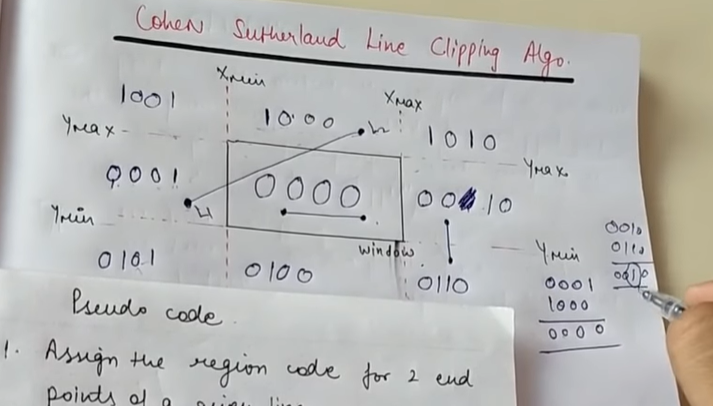 Cohen Sutherland Line Clipping Algo.
Xmin
Xmax
1001
1000
1010
Ymax
Ymax
0001
0000
0010
Ymin
window
Ymin
0101
0100
0110
0010
0110
0010
0001
1000
0000
Pseudo code
1. Assign the region code for 2 end
points of a